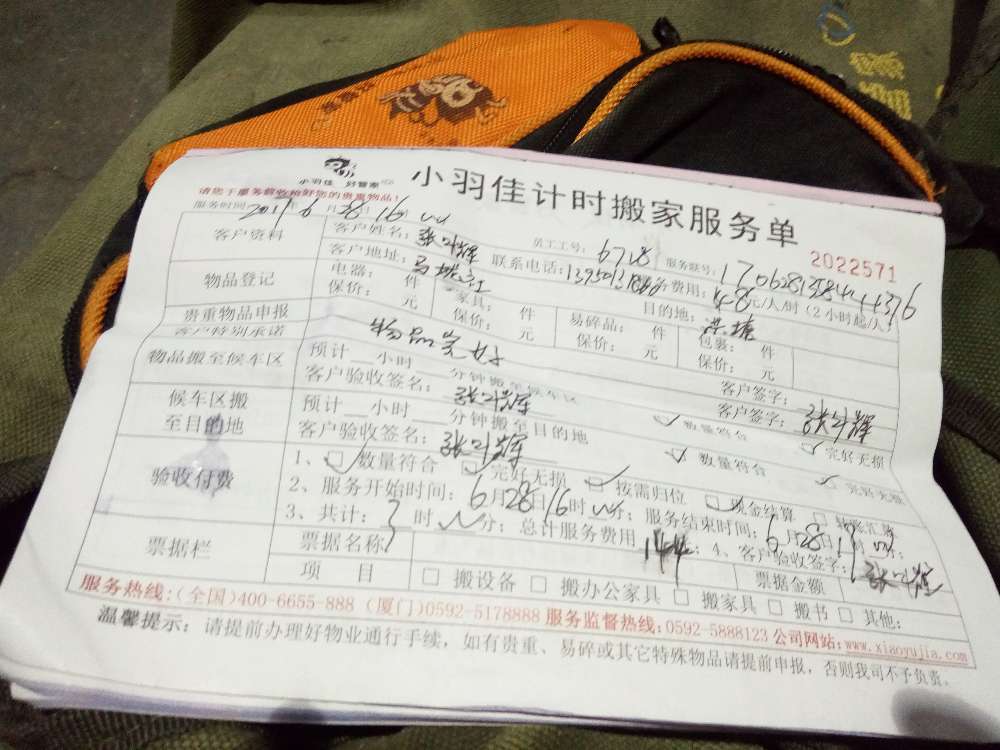 小羽佳 好管家
小羽佳计时搬家服务单
请您于服务前收拾好您的贵重物品!
2022571
服务时间: 年6月28日16时
员工工号: 6718 服务账号:
客户资料
客户姓名:
客户地址: 联系电话: 服务费用: 48元/人/时(2小时起/人)
目的地:
物品登记
电器: 件 家具: 件 易碎品: 件 包裹: 件
保价: 元 保价: 元 保价: 元 保价: 元
贵重物品申报
客户特别承诺 物品完好 客户签字:
物品搬至候车区
预计__小时__分钟搬至候车区 数量符合 完好无损
客户验收签名: 客户签字:
候车区搬
至目的地
预计__小时__分钟搬至目的地 数量符合 完好无损
客户验收签名:
验收付费
1、数量符合 完好无损 按需归位 现金结算 转账汇款
2、服务开始时间: 6月28日16时 分; 服务结束时间: 6月28日19时 分;
3、共计: 3时 分; 总计服务费用 144; 4、客户验收签字:
票据栏
票据名称 票据金额
项 目 搬设备 搬办公家具 搬家具 搬书 其他:
服务热线:(全国)400-6655-888 (厦门)0592-5178888 服务监督热线:0592-5888123 公司网站:www.xiaoyujia.com
温馨提示: 请提前办理好物业通行手续, 如有贵重、易碎或其它特殊物品请提前申报, 否则我司不予负责。